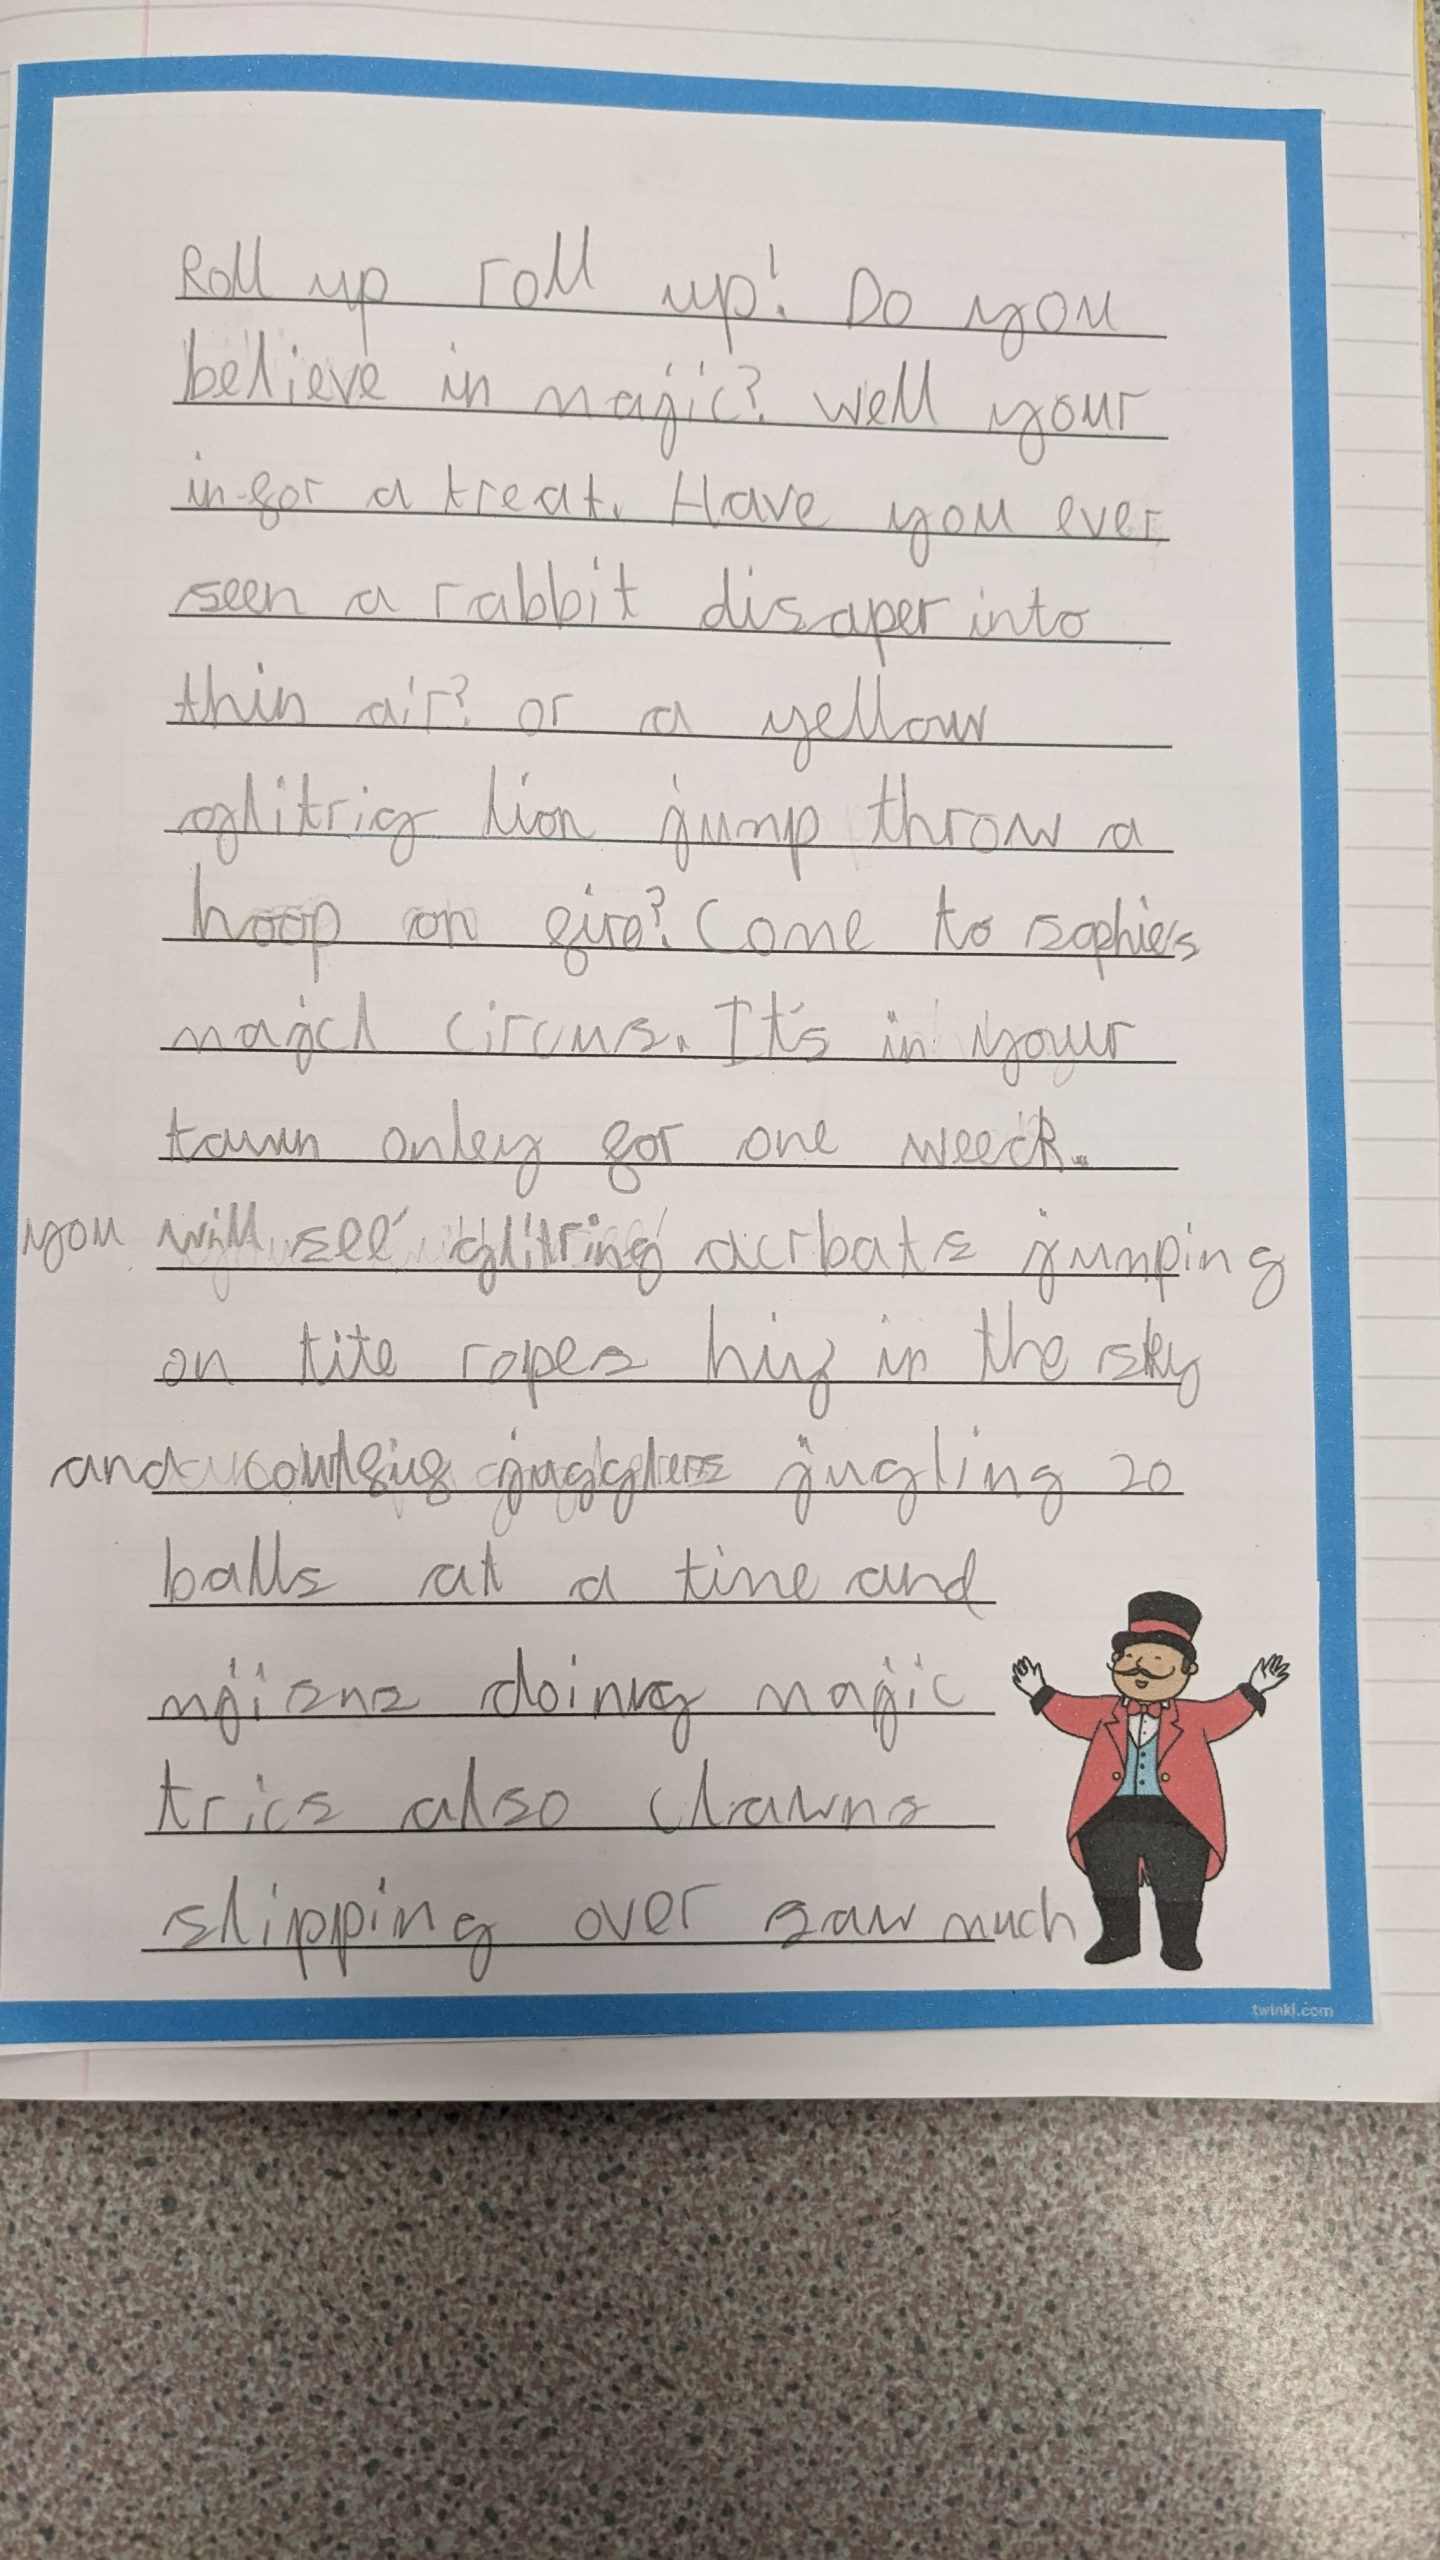 Roll up roll up! Do you
believe in magic? Well your
in for a treat. Have you ever
seen a rabbit disaper into
thin air? or a yellow
glitrig lion jump throw a
hoop on fire? Come to sophie's
magicl circus. It's in your
town onley for one weeck.
you will see glitring acrbats jumping
on tite ropes hig in the sky
and jugglers jugling 20
balls at a time and
mgisns doing magic
trics also clawns
slipping over saw much
twinkl.com